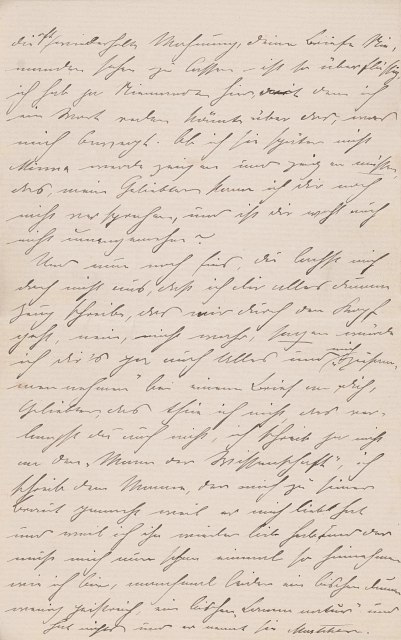 die wiederholte Mahnung, deine Briefe Nie-
manden sehen zu lassen – ist so überflüssig
ich hab ja Niemanden hier, mit dem ich
ein Wort reden könnte über das, was
mich bewegt. Ob ich sie später nicht
Minna werde zeigen und zeigen müssen
das, mein Geliebter, kann ich dir noch
nicht versprechen, und ist dir wohl auch
nicht unangenehm?
Und nun noch eins, du lachst mich
doch nicht aus, daß ich dir alles dumme
Zeug schreibe, das mir durch den Kopf
geht, nein, nicht wahr, sagen würde
ich dir's ja auch Alles und mich "zusam-
men nehmen" bei einem Brief an dich,
Geliebter, das thue ich nicht, das ver-
langst du auch nicht, ich schreib ja nicht
an den "Mann der Wissenschaft", ich
schreib dem Manne, der mich zu seiner
Braut gemacht weil er mich lieb hat
und weil ich ihn wieder lieb hab und der
muß mich nun schon einmal so hinnehmen
wie ich bin, manchmal leider ein bischen dumm
wenig geistreich ein bischen und
hat und er nennt sie